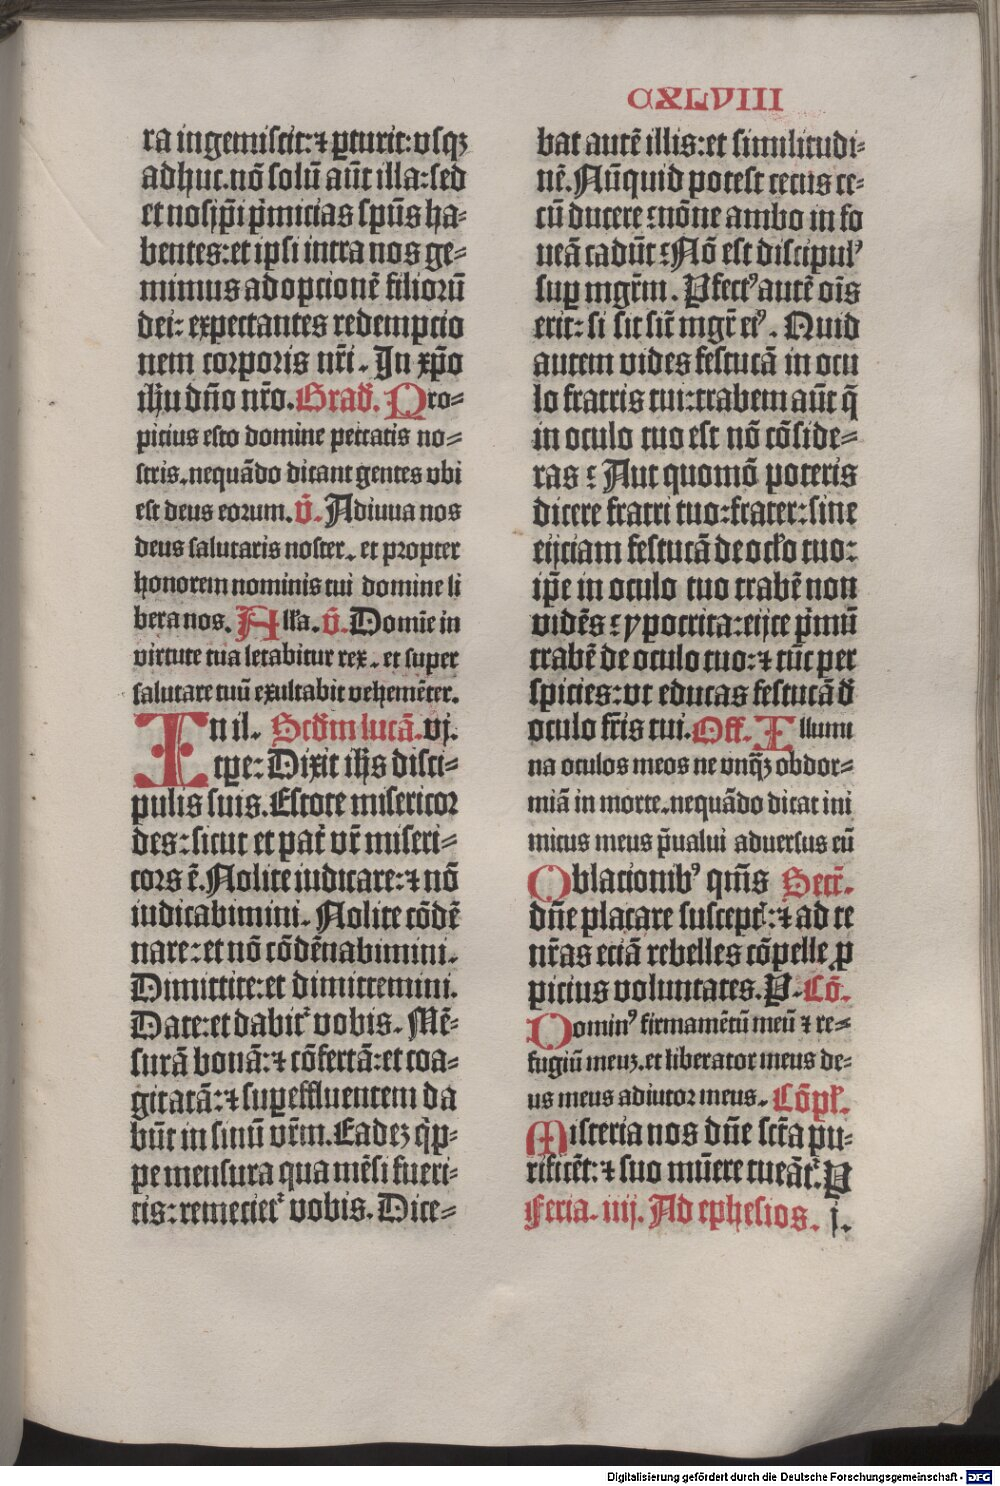 CXLVIII
ra ingemiscit: ⁊ ꝑturit: vsqꝫ
adhuc. nō solū aūt illa: sed
et nos ip̄i p̄micias sp̄ūs ha⸗
bentes: et ipsi intra nos ge⸗
mimus adopcionē filiorū
dei: expectantes redempcio
nem corporis nr̄i. In xp̄o
ihū dn̄o nr̄o. Grad̄. Pro⸗
picius esto domine peccatis no⸗
stris. nequādo dicant gentes vbi
est deus eorum. v̄. Adiuua nos
deus salutaris noster. et propter
honorem nominis tui domine li
bera nos. Alľa. v̄. Domīe in
virtute tua letabitur rex. et super
salutare tuū exultabit vehemēter.
In il. Scd̄m lucā. vj.
tꝑe: Dixit ihs̄ disci⸗
pulis suis. Estote misericor
des: sicut et pat̄ vr̄ miseri⸗
cors ē. Nolite iudicare: ⁊ nō
iudicabimini. Nolite cōdē
nare: et nō cōdēnabimini.
Dimittite: et dimittemini.
Date: et dabit᷑ vobis. Mē⸗
surā bonā: ⁊ cōfertā: et coa⸗
gitatā: ⁊ suꝑeffluentem da
būt in sinū vr̄m. Eadeꝫ q̄p⸗
pe mensura qua mēsi fueri⸗
tis: remeciet᷑ vobis. Dice⸗
bat autē illis: et similitudi⸗
nē. Nūquid potest cecus ce⸗
cū ducere: nōne ambo in fo
ueā cadūt: Nō est discipulꝰ
suꝑ mgr̄m. Pfectꝰ autē oīs
erit: si sit sic̄ mgr̄ eiꝰ. Quid
autem vides festucā in ocu
lo fratris tui: trabem aūt q̄
in oculo tuo est nō cōside⸗
ras: Aut quomō poteris
dicere fratri tuo: frater: sine
eijciam festucā de oclo tuo:
ip̄e in oculo tuo trabē non
vidēs: ypocrita: eijce p̄mū
trabē de oculo tuo: ⁊ tūc per
spicies: vt educas festucā d̄
oculo fr̄is tui. Off. Illumi
na oculos meos ne vnq̄ꝫ obdor⸗
miā in morte. nequādo dicat ini
micus meus p̄ualui aduersus eū
Oblacionibꝰ qm̄s Secr̄.
dn̄e placare suscept᷑: ⁊ ad te
nr̄as eciā rebelles cōpelle ꝓ
picius voluntates. P. Cō.
Dominꝰ firmamētū meū ⁊ re⸗
fugiū meuꝫ. et liberator meus de⸗
us meus adiutor meus. Cōpl̄.
Misteria nos dn̄e sct̄a pu⸗
rificēt: ⁊ suo mūere tueāt᷑. P
Feria. iiij. Ad ephesios. j.
Digitalisierung gefördert durch die Deutsche Forschungsgemeinschaft - DFG